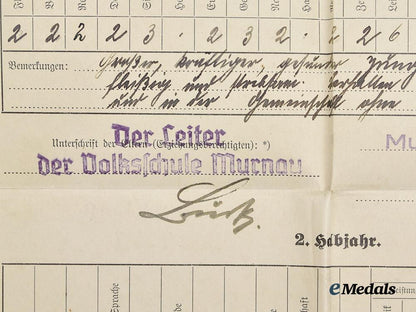 2 2 2 2 3 · 2 3 2 · 2 2 6
Bemerkungen: Großer, kräftiger, gesunder Junge
fleißig und strebsam. Verhalten
und in der Gemeinschaft ohne
Unterschrift der Eltern (Erziehungsberechtigten): *)
Der Leiter
der Volksschule Murnau
Mu
2. Habjahr.
Sprache
eMedals